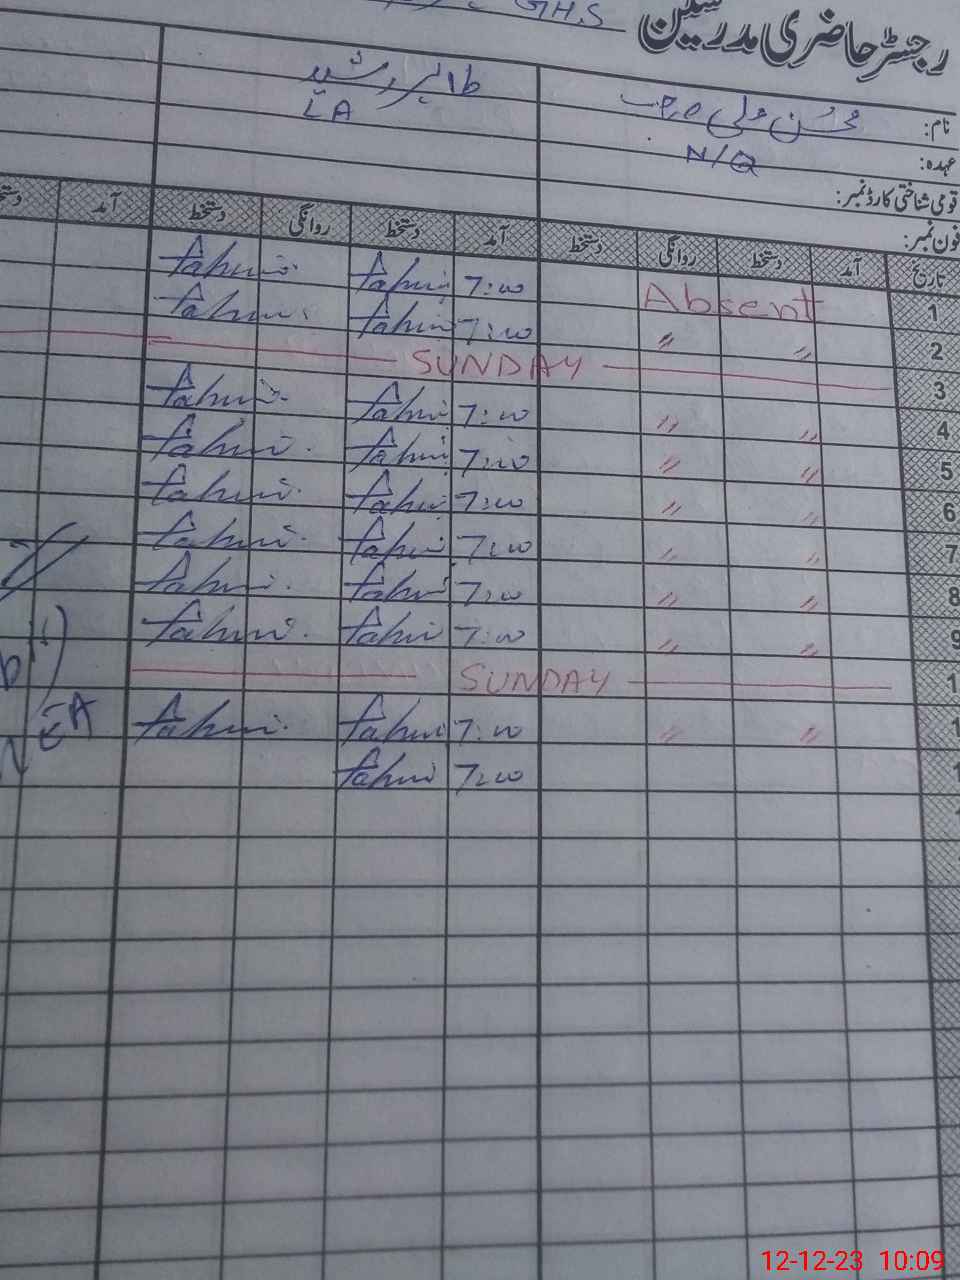 G.H.S
رجسٹر حاضری مدرسین
نام: محسن علی طاہر رشید
عہدہ: N/Q LA
قومی شناختی کارڈ نمبر:
فون نمبر:
تاریخ آمد دستخط روانگی دستخط آمد دستخط روانگی دستخط آمد
1 Absent 7:00 Tahir Tahir
2 〃 〃 7:00 Tahir Tahir
3 SUNDAY
4 〃 〃 7:00 Tahir Tahir
5 〃 〃 7:00 Tahir Tahir
6 〃 〃 7:00 Tahir Tahir
7 〃 〃 7:00 Tahir Tahir
8 〃 〃 7:00 Tahir Tahir
9 〃 〃 7:00 Tahir Tahir
1 SUNDAY
1 〃 〃 7:00 Tahir Tahir
1 7:00 Tahir
12-12-23 10:09